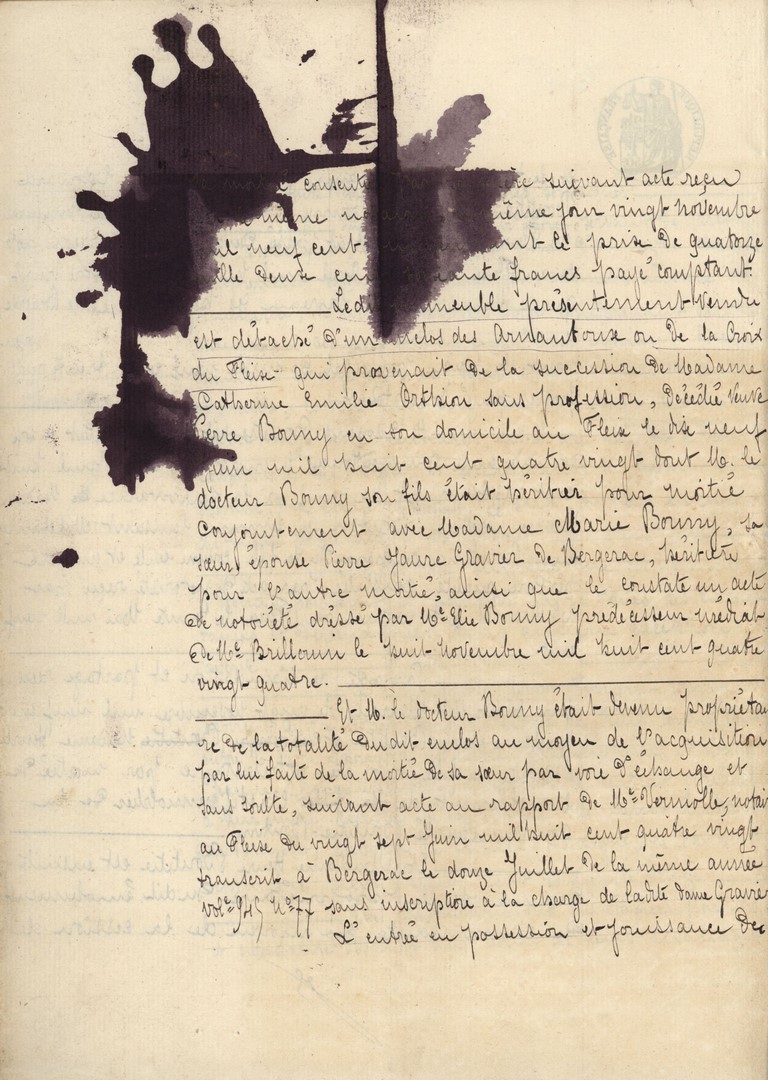 consenti ère suivant acte reçu
même même jour vingt novembre
il neuf cent ont le prise de quatorze
ille deuse cin ante francs payé comptant.
Ledi immeuble présentement vendu
est détaché d'un enclos des Arnautouse ou de la Croix
du Fleise qui provenait de la succession de Madame
Catherine Emilie Orthion sans profession, décédée veuve
ierre Bonny en son domicile au Fleise le dise neuf
juin mil huit cent quatre vingt dont M. le
docteur Bonny son fils était héritier pour moitié
conjointement avec Madame Marie Bonny, sa
sœur, épouse Pierre Jaure Gravier de Bergerac, héritière
pour l'autre moitié, ainsi que le constate un acte
de notoriété dressé par Me Elie Bonny prédécesseur médiat
de Me Brillouin le huit novembre mil huit cent quatre
vingt quatre.
Et M. le docteur Bonny était devenu propriétai
re de la totalité dudit enclos au moyen de l'acquisition
par lui faite de la moitié de sa sœur par voie d'échange et
sans soulte, suivant acte au rapport de Me Vermiolle, notai
au Fleise du vingt sept Juin mil huit cent quatre vingt
transcrit à Bergerac le douze Juillet de la même année
vole 945 No 77 sans inscription à la charge de ladite dame Gravier
L'entrée en possession et jouissance des